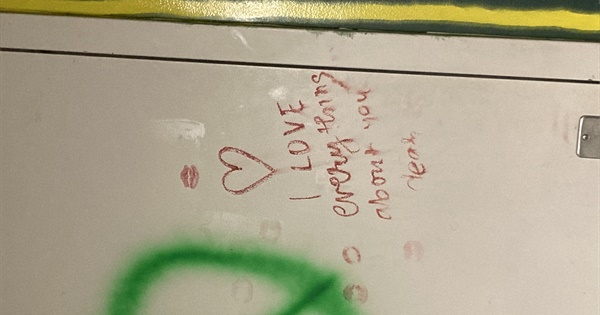 I LOVE
everything
about you